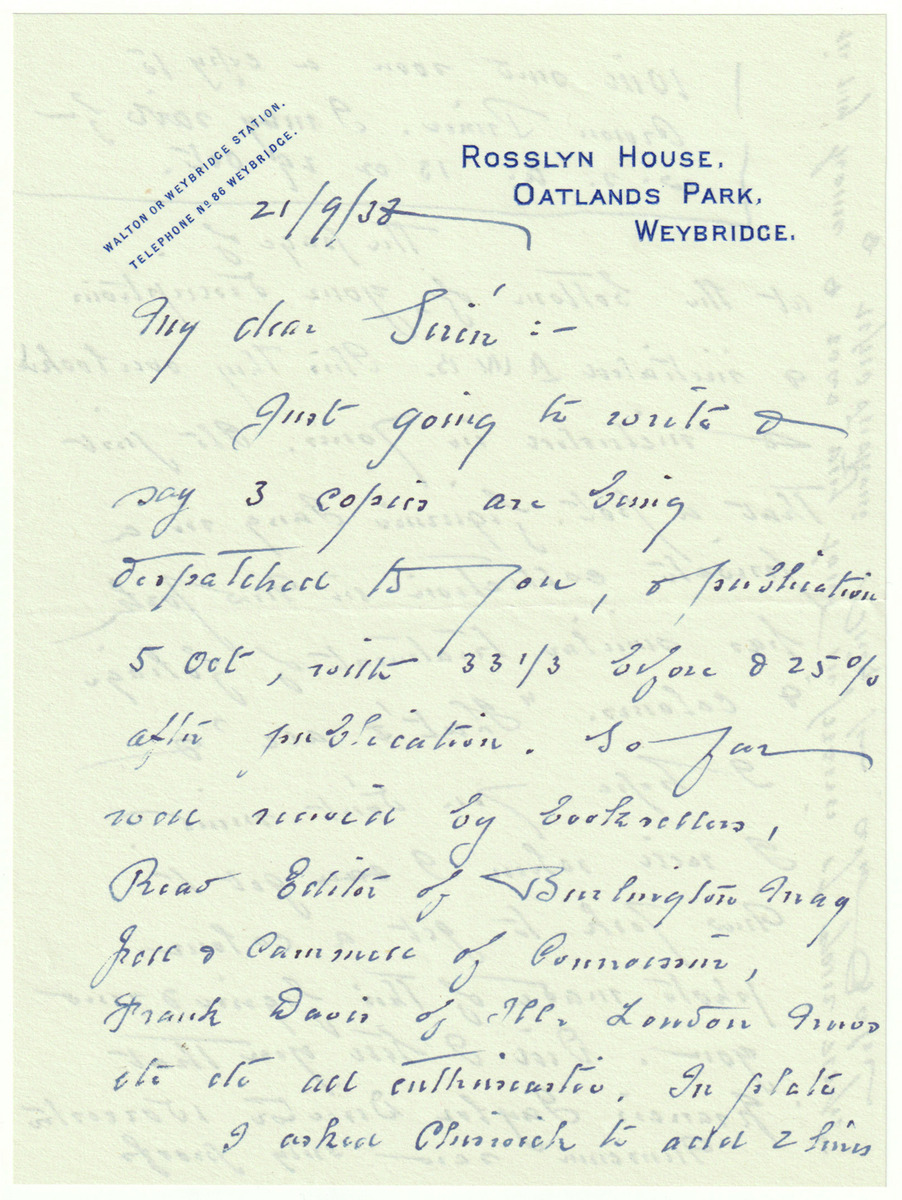 WALTON OR WEYBRIDGE STATION.
TELEPHONE Nº 86 WEYBRIDGE.
ROSSLYN HOUSE,
OATLANDS PARK,
WEYBRIDGE.
21/9/38
My dear Sirén :-
Just going to write &
say 3 copies are being
despatched to you, & publication
5 Oct, with 33 1/3 before & 25%
after publication. So far
well received by booksellers,
Read Editor of Burlington Mag
& Cammell of Connoisseur,
Frank Davis of Ill. London News
etc etc all enthusiastic. In plate
I asked Chiswick to add 2 lines